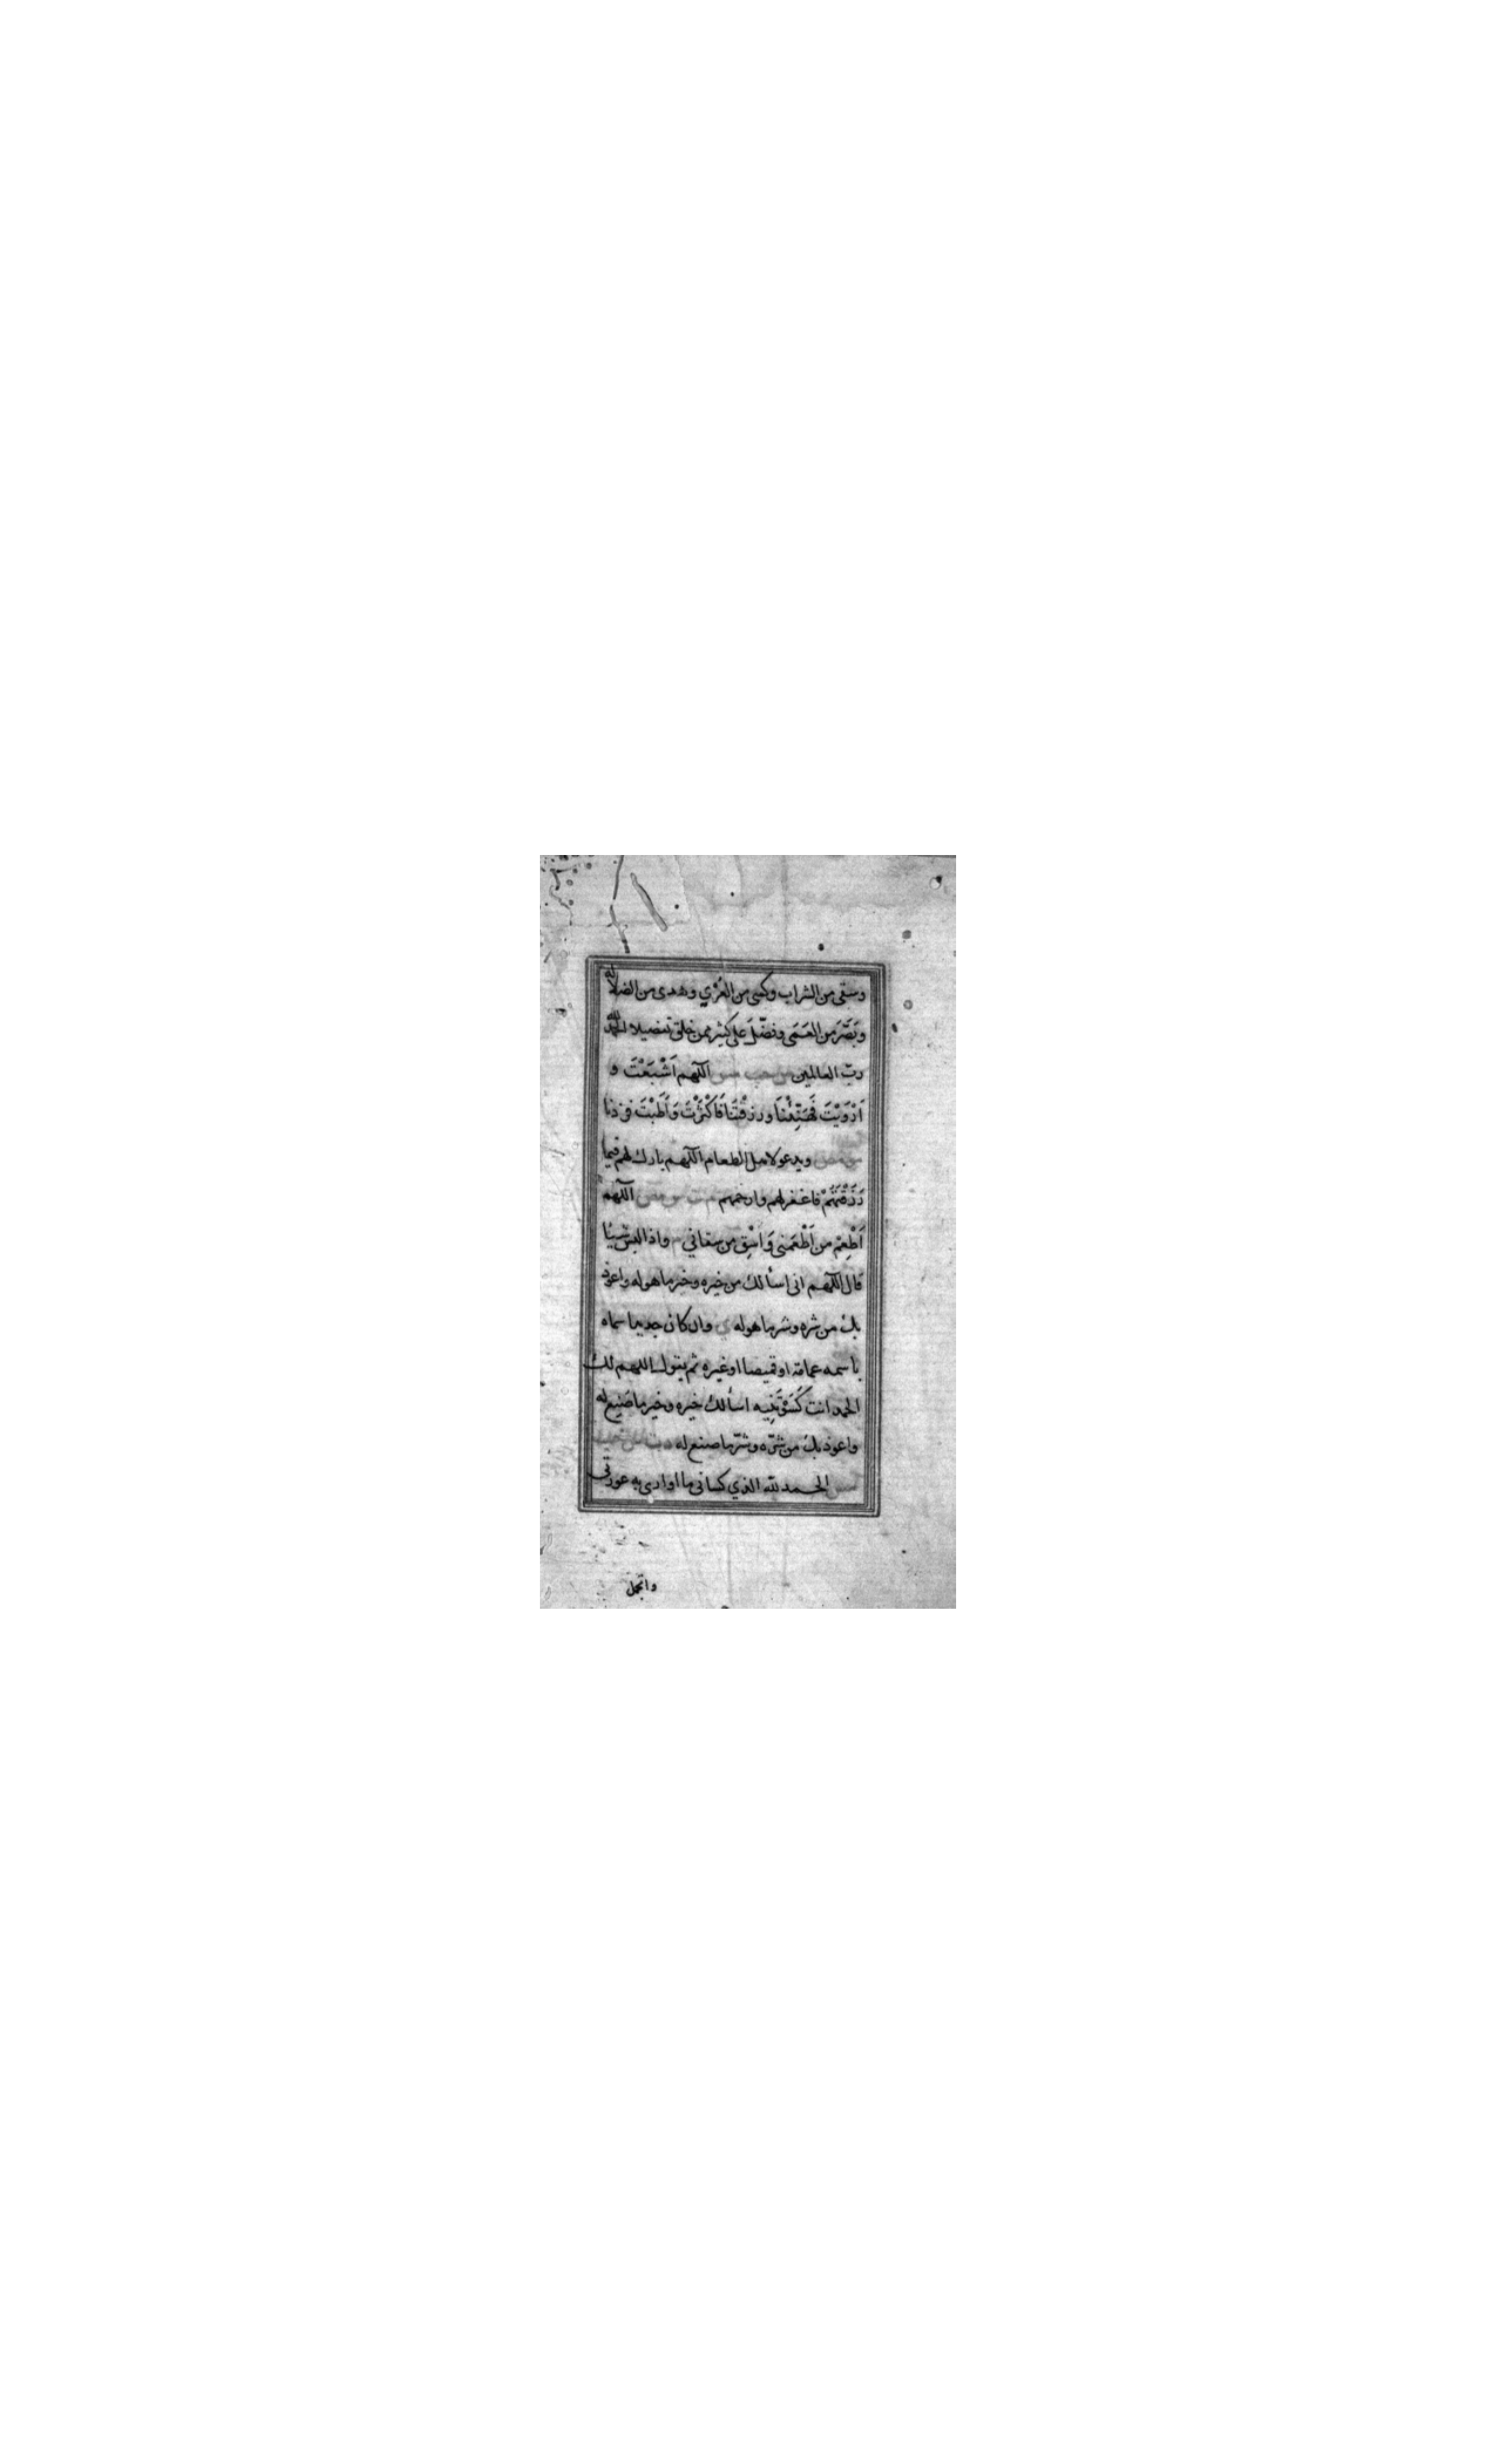 وسقى من الشراب وكسى من العُرْيِ وهدى من الضلالة
وبَصَّرَ من العَمَى وفضّلَ على كثير ممن خلق تفضيلا الحمد لله
ربّ العالمين س حب مس اللهم اَشْبَعْتَ و
اَرْوَيْتَ فَهَنِّئْنَا ورزقْتَنَا فَاَكْثَرْتَ وَاَطَبْتَ فزدنا
مو مص ويدعو لاهل الطعام اللهم بارك لهم فيما
رَزَقْتَهُمْ فاغفر لهم وارحمهم م ت س مص اللهم
اَطْعِمْ من اَطْعَمَنى وَاَسْقِ من سقاني م واذا لبس شيئا
قال اللهم انى اسألك من خيره وخير ما هو له واعوذ
بك من شره وشر ما هو له ي وان كان جديدا سماه
باسمه عمامة او قميصا او غيره ثم يقول اللهم لك
الحمد انت كَسَوْتَنِيه اسألك خيره وخير ما صُنِعَ له
واعوذ بك من شرّه وشرّ ما صنع له د ت س حب
مس الحمد لله الذي كسانى ما اوارى به عورتى
واتجمل